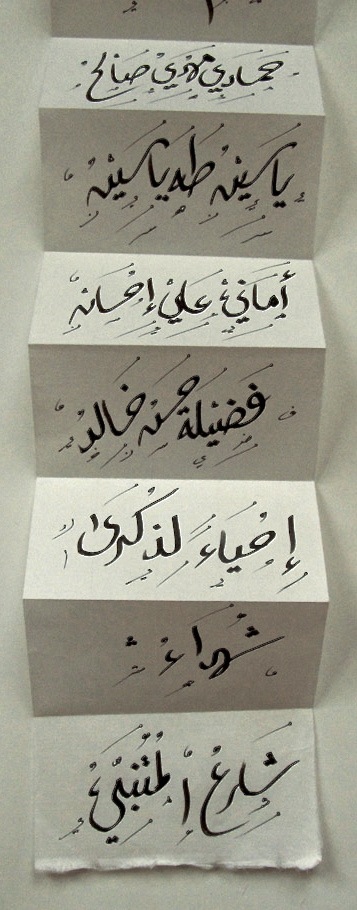 حمادي مهدي صالح
ياسين طه ياسين
أماني علي إحسان
فضيلة حسن خالد
إحياءً لذكرى
شهداء
شارع المتنبي